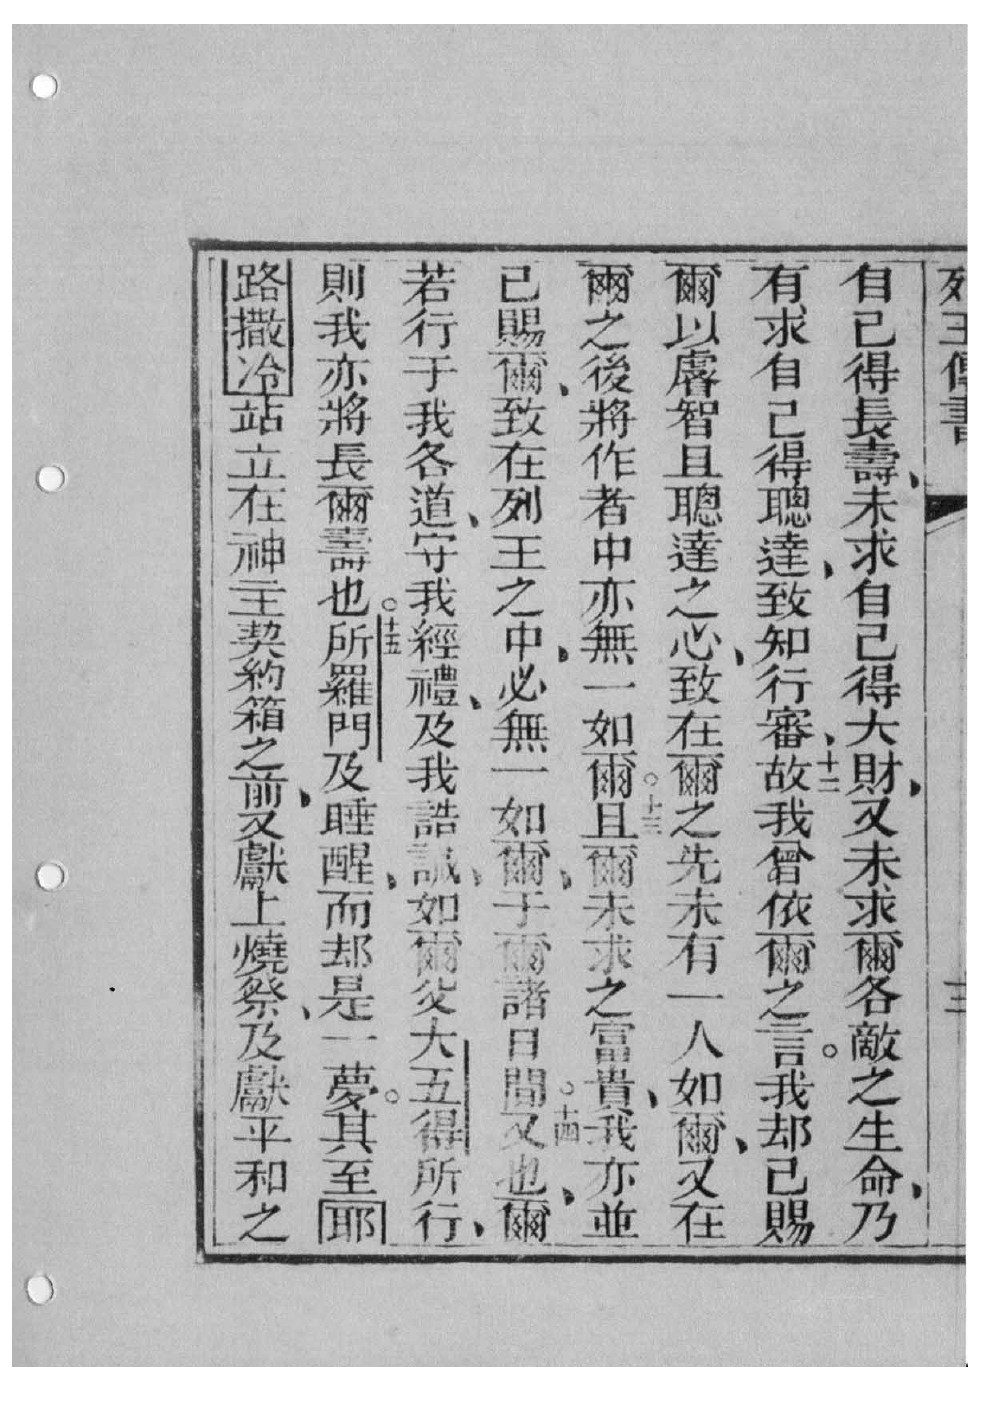 列王傳書 三
自己得長壽、未求自己得大財、又未求爾各敵之生命、乃
有、求自己得聰達、致知行審、十二故我曾依爾之言。我却已賜
爾以睿智且聰達之心、致在爾之先未有一人如爾、又在
爾之後將作者中亦無一如爾。十三且爾未求之富貴、我亦並
已賜爾、致在列王之中、必無一如爾、于爾諸日間。十四又也、爾
若行于我各道、守我經禮、及我誥誡、如爾父大五得所行、
則我亦將長爾壽也。十五所羅門及睡醒、而却是一夢。其至耶
路撒冷站立在神主契約箱之前、又獻上燒祭、及獻平和之